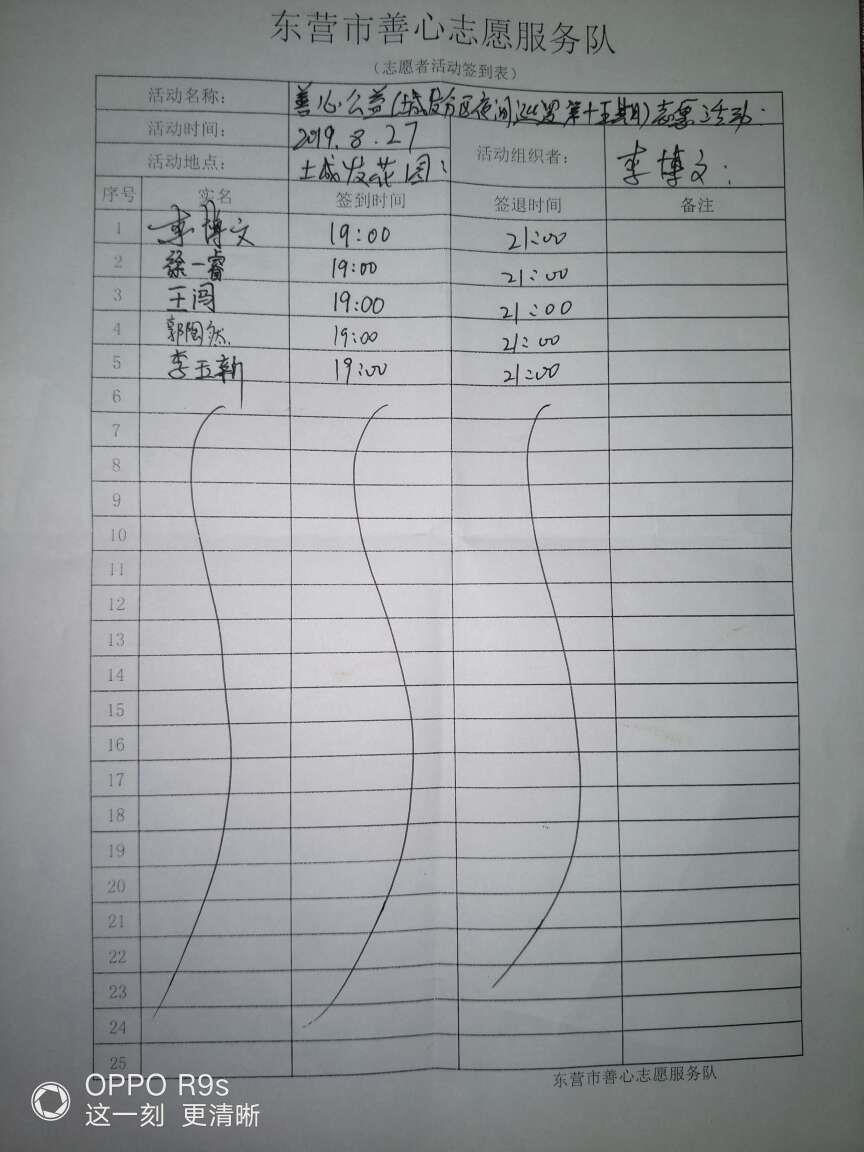 东营市善心志愿服务队
(志愿者活动签到表)
活动名称: 善心公益(城发分区夜间巡逻第十五期)志愿活动.
活动时间: 2019.8.27 活动组织者: 李博文.
活动地点: 土城发花园
序号 实名 签到时间 签退时间 备注
1 李博文 19:00 21:00
2 徐一睿 19:00 21:00
3 王闯 19:00 21:00
4 郭陶然 19:00 21:00
5 李玉新 19:00 21:00
6
7
8
9
10
11
12
13
14
15
16
17
18
19
20
21
22
23
24
25
东营市善心志愿服务队
OPPO R9s
这一刻 更清晰